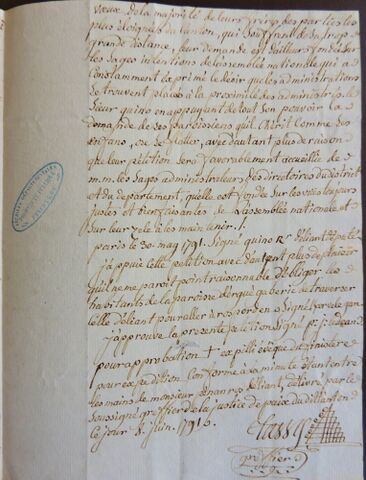 vœux de la majorité de leurs frères des parties les
plus éloignés du canton, qui souffrent de sa trop
grande distance, leur demande est d'ailleurs fondée sur
les sages intentions de l'assemblée nationale qui a
constamment exprimé le désir que les administrations
se trouvent placés à la proximité des administrés. le
sieur guino en appuyant de tout son pouvoir la
demande de ses paroissiens qu'il chérit comme ses
enfans, ose se flatter, avec d'autant plus de raison
que leur pétition sera favorablement accueillie de
m.m. les sages administrateurs des directoires du district
et du département, qu'elle est fondée sur les vües toujours
justes et bienfaisantes de l'assemblée nationale et
sur leur zèle à les maintenir ./.
paris le 30. may 1791. Signé guino Rr d'éliant député
j'appuie cette pétition avec d'autant plus de plaisir
qu'il ne me paroit point raisonnable d'obliger les
habitants de la paroisse d'ergué gaberic de traverser
celle d'éliant pour aller à rosporden Signé
j'approuve la présente pétition Signé
pour approbation + expilli évêque du finistère
pour expédition conforme à la minute étant entre
les mains de monsieur éliant, délivré par le
soussigné greffier de la justice de paix du dit canton
ce jour 8. juin. 1791 ./.
greffier